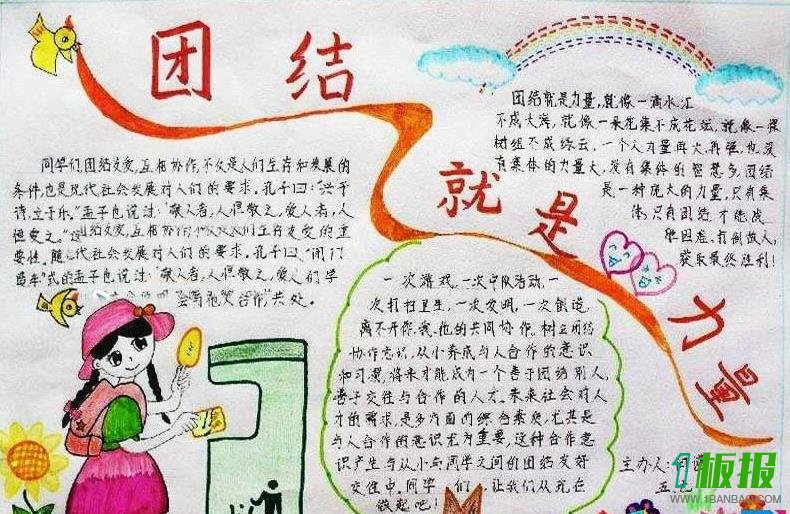 团结
就是
力量
同学们,团结友爱,互相协作,不仅是人们生存和发展的
条件,也是现代社会发展对人们的要求。孔子曰:"兴于
诗,立于乐。"孟子也说过:"敬人者,人恒敬之,爱人者,人
恒爱之。"团结友爱,互相协作
要性。随 代社会发展对人们的要求。孔子曰、"闭门
造车"式的孟子也说过:"敬人者,人恒敬之,爱人们学
会 合作 共处。
团结就是力量,就像一滴水汇
不成大海,就像一朵花集不成花坛,就像一棵
树组不成绿云,一个人力量再大,再强,也没
有集体的力量大,没有集体的智慧多,团结
是一种庞大的力量,只有集
体,只有团结,才能战
胜困难、打倒敌人,
获取最终胜利!
一次游戏,一次中队活动,一
次打扫卫生,一次发明,一次创造,
离不开你、我、他的共同协作。树立团结
协作意识,从小养成与人合作的意识
和习惯,将来才能成为一个善于团结别人,
善于交往与合作的人才。未来社会对人
才的需求,是多方面的综合素质,尤其是
与人合作的意识尤为重要,这种合作意
识产生与从小与同学之间的团结友好
交往中。同学们,让我们从现在
做起吧!
主办人:
五
1板报
WWW.1BANBAO.COM